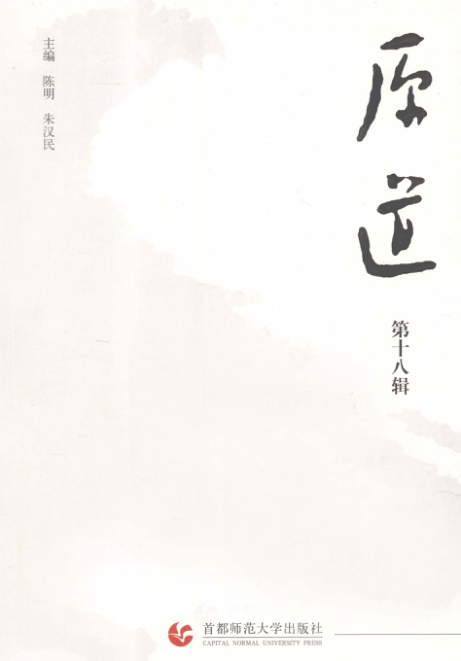 原道
第十八辑
主编 陈明 朱汉民
首都师范大学出版社
CAPITAL NORMAL UNIVERSITY PRESS